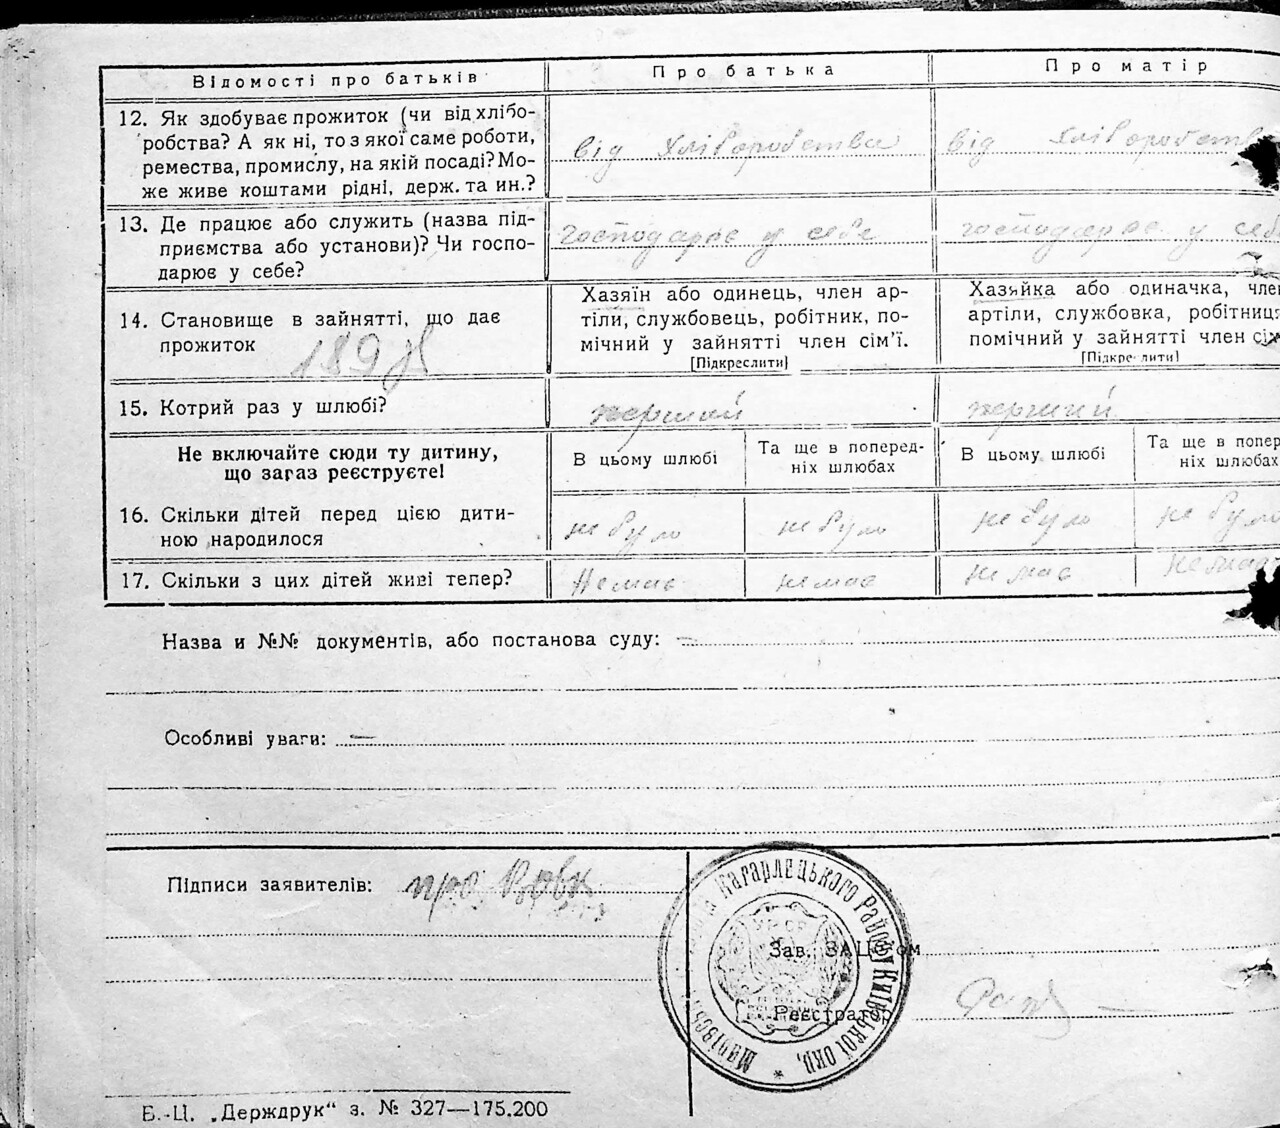 Відомості про батьків
Про батька
Про матір
12. Як здобуває прожиток (чи від хлібо-
робства? А як ні, то з якої саме роботи,
ремества, промислу, на якій посаді? Мо-
же живе коштами рідні, держ. та ин.?
від хліборобства
від хліборобств
13. Де працює або служить (назва під-
приємства або установи)? Чи госпо-
дарює у себе?
господарює у себе
господарює у себе
14. Становище в зайнятті, що дає
прожиток
189
Хазяїн або одинець, член ар-
тіли, службовець, робітник, по-
мічний у зайнятті член сім’ї.
[Підкреслити]
Хазяйка або одиначка, член
артіли, службовка, робітниця
помічний у зайнятті член сім
[Підкреслити]
15. Котрий раз у шлюбі?
перший
перший
Не включайте сюди ту дитину,
що загаз реєструєте!
В цьому шлюбі
Та ще в поперед-
ніх шлюбах
В цьому шлюбі
Та ще в попер
ніх шлюбах
16. Скільки дітей перед цією дити-
ною народилося
не було
не було
не було
не було
17. Скільки з цих дітей живі тепер?
Немає
немає
немає
немає
Назва и №№ документів, або постанова суду: —
Особливі уваги: —
Підписи заявителів: про Вовк
Кагарлецького Району Київської окр.
УСРР
Зав. ЗАЦС'ом
Реєстратор
Б.-Ц. „Держдрук“ з. № 327—175.200